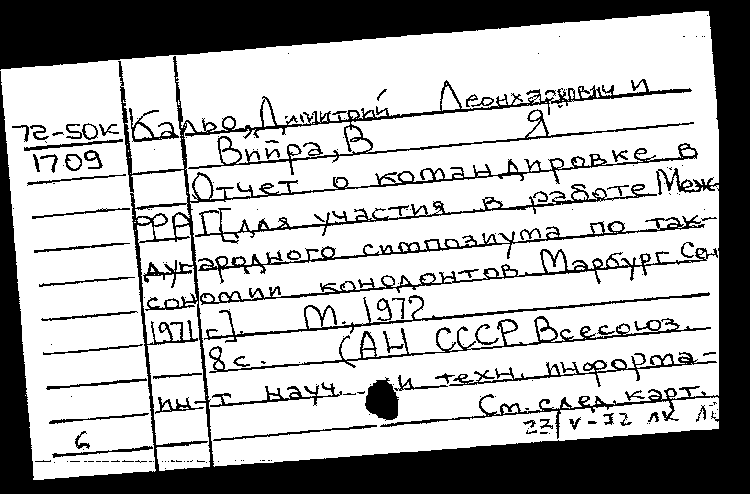 72-50К
1709
Кальо, Димитрий Леонхардович и
Вийра, В Я
Отчет о командировке в
ФРГ [для участия в работе Меж-
дународного симпозиума по так-
сономии конодонтов. Марбург. Сен
1971 г.]. М., 1972.
8 с. (АН СССР. Всесоюз.
ин-т науч. и техн. информа-
См. след. карт.
6
23/V-72 ЛК